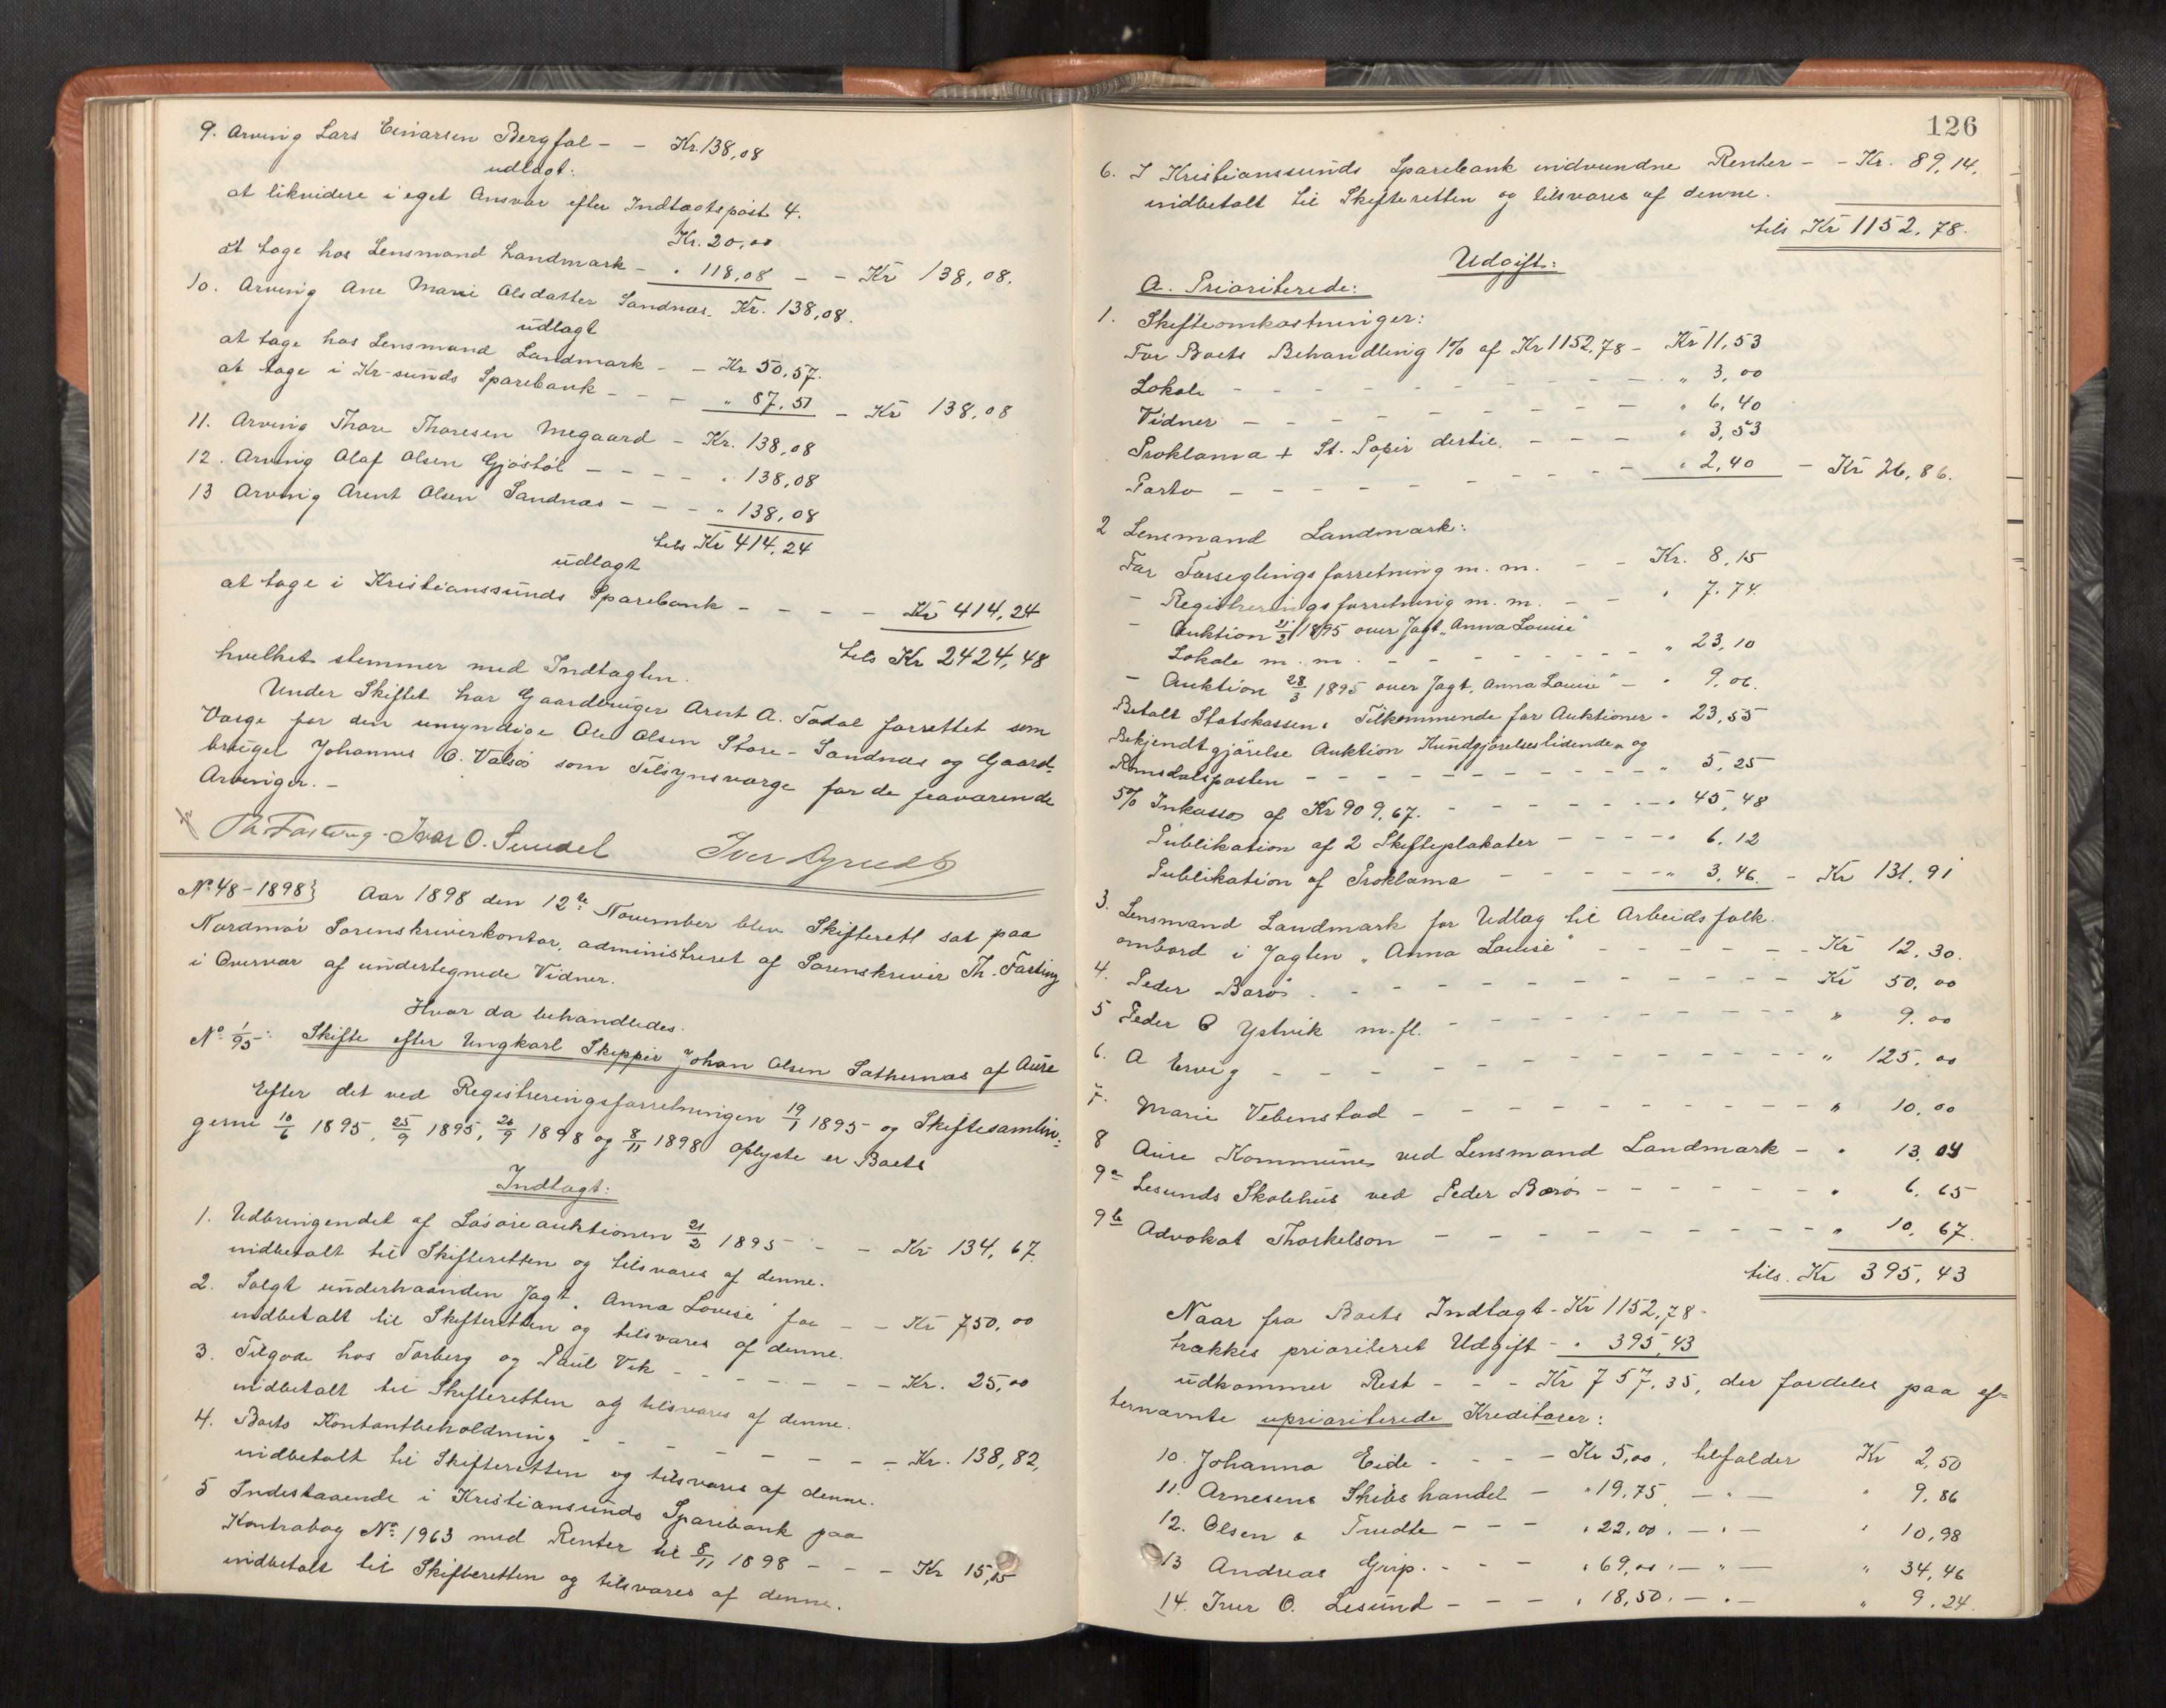 9. Arving Lars Einarsen Bergfal - - Kr. 138,08
udlagt:
at likvidere i eget Ansvar efter Indtægtspost 4.
Kr. 20,00
at tage hos Lensmand Landmark - " 118,08 - - Kr 138,08.
10. Arving Ane Marie Olsdatter Sandnæs. Kr. 138,08.
udlagt
at tage hos Lensmand Landmark - - Kr 50,57.
at tage i Kr-sunds Sparebank - - - " 87,51 - Kr 138,08
11. Arving Thore Thoresen Megaard - Kr. 138,08
12. Arving Olaf Olsen Gjøstøl - - - " 138,08
13 Arving Arent Olsen Sandnæs - - - " 138,08
tils Kr 414,24
udlagt
at tage i Kristianssunds Sparebank - - - - Kr 414,24
tils Kr 2424,48
hvilket stemmer med Indtægten.
Under Skiftet har Gaardbruger Arent A. Todal forrettet som
Værge for den umyndige Ole Olsen Store-Sandnæs og Gaard-
bruger Johannes O. Valsø som Tilsynsværge for de fraværende
Arvinger. -
Th. Fasting. Ivar O. Sundel
No. 48-1898} Aar 1898 den 12te November blev Skifteret sat paa
Nordmør Sorenskriverkontor, administreret af Sorenskriver Th. Fasting
i Overvær af undertegnede Vidner.
Hvor da behandledes.
No. 1/95: Skifte efter Ungkarl Skipper Johan Olsen Sæthernæs af Aure
Efter det ved Registreringsforretningen 19/1 1895 og Skiftesamlin-
gerne 10/6 1895, 25/9 1895, 26/9 1898 og 8/11 1898 oplyste er Boets
Indtægt:
1. Udbringendet af Løsøreauktionen 21/2 1895 - - Kr 134,67.
indbetalt til Skifteretten og tilsvares af denne.
2. Solgt underhaanden Jagt "Anna Lovise" for - - Kr 750,00
indbetalt til Skifteretten og tilsvares af denne.
3. Tilgode hos Torberg og Paul Vik - - - - - - Kr. 25,00
indbetalt til Skifteretten og tilsvares af denne.
4. Boets Kontantbeholdning - - - - - - - - Kr. 138,82,
indbetalt til Skifteretten og tilsvares af denne.
5 Indestaaende i Kristiansunds Sparebank paa
Kontrabog No. 1963 med Renter til 8/11 1898 - - - Kr 15,15
indbetalt til Skifteretten og tilsvares af denne.
126
6. I Kristianssunds Sparebank indvundne Renter - - Kr. 89,14,
indbetalt til Skifteretten og tilsvares af denne.
tils Kr 1152,78.
Udgift:
A. Prioriterede:
1. Skifteomkostninger:
For Boets Behandling 1% af Kr 1152,78 - Kr 11,53
Lokale - - - - - - - - - - " 3,00
Vidner - - - - - - - - - " 6,40
Proklama + St. Papir dertil. - - - " 3,53
Porto - - - - - - - - - - " 2,40 - Kr 26,86.
2 Lensmand Landmark:
For Forseglingsforretning m. m. - - Kr. 8,15
- Registreringsforretning m. m. - - " 7.74.
- Auktion 21/2 1895 over Jagt "Anna Louise"
Lokale m. m. - - - - - - - - " 23,10
- Auktion 28/3 1895 over Jagt "Anna Louise" - " 9,06.
Betalt Statskassen Tilkommende for Auktioner " 23,55
Bekjendtgjørelse Auktion Kundgjørelsestidende og
Romsdalsposten - - - - - - - - - " 5,25
5% Inkasso af Kr 909,67. - - - - - - " 45,48
Publikation af 2 Skifteplakater - - - - " 6,12
Publikation af Proklama - - - - - " 3,46. - Kr 131,91
3. Lensmand Landmark for Udlæg til Arbeidsfolk
ombord i Jagten "Anna Louise" - - - - - - Kr 12,30.
4. Peder Barø - - - - - - - - - - - Kr 50,00
5 Peder O Ystvik m. fl. - - - - - - - - - - " 9,00
6. A Ervig - - - - - - - - - - - " 125,00
7. Marie Vebenstad - - - - - - - - - - - " 10,00
8 Aure Kommune ved Lensmand Landmark - " 13,04
9a Lesunds Skolehus ved Peder Barø - - - - - - " 6,65
9b Advokat Thorkelson - - - - - - - - " 10,67.
tils. Kr 395,43
Naar fra Boets Indtægt - Kr 1152,78-
trækkes prioriteret Udgift - " 395,43
udkommer Rest - - - Kr 757,35, der fordeles paa ef-
ternævnte uprioriterede Kreditorer:
10. Johanna Eide - - - - Kr 5,00, tilfalder Kr 2,50
11. Arnesens Skibshandel - " 19,75, - " - " 9,86
12. Olsen & Trudte - - - " 22,00. - " - " 10,98
13 Andreas Grip. - - - " 69,00. - " - " 34,46
14. Iver O. Lesund - - - " 18,50. - " - " 9,24.